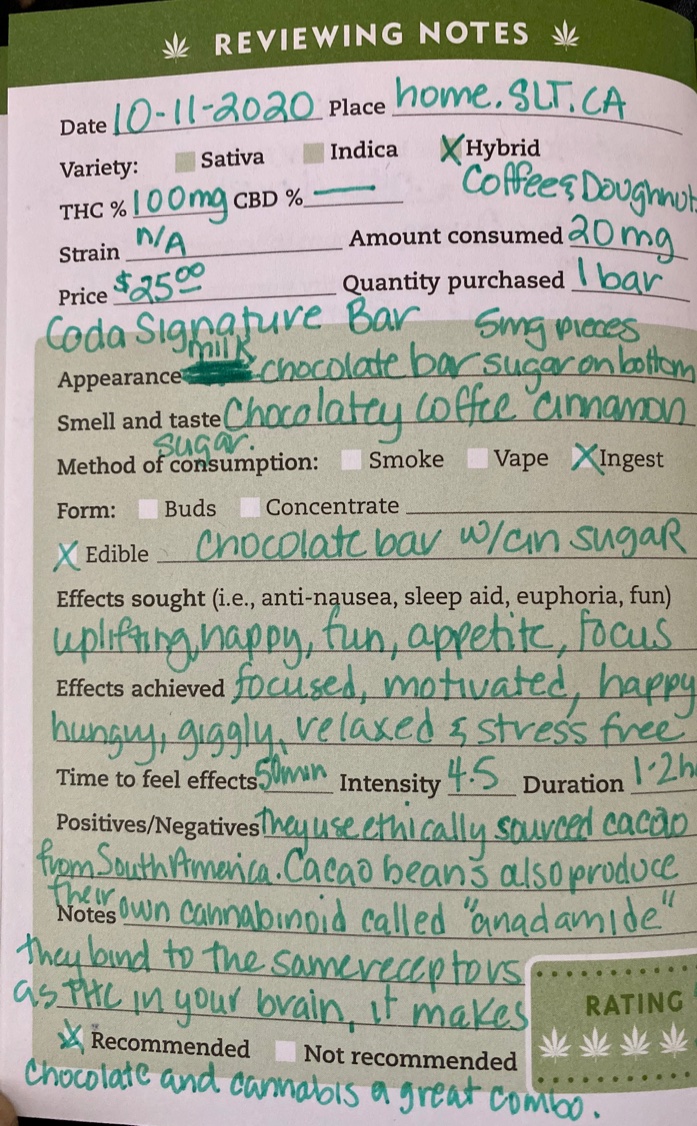 REVIEWING NOTES
Date 10-11-2020 Place home. SLT. CA
Variety: Sativa Indica X Hybrid
Coffee & Doughnut
THC % 100mg CBD % —
Strain N/A Amount consumed 20mg
Price $25.00 Quantity purchased 1 bar
Coda Signature Bar 5mg pieces
milk
Appearance chocolate bar sugar on bottom
Smell and taste Chocolatey coffee cinnamon
sugar.
Method of consumption: Smoke Vape X Ingest
Form: Buds Concentrate
X Edible chocolate bar w/cin sugar
Effects sought (i.e., anti-nausea, sleep aid, euphoria, fun)
uplifting, happy, fun, appetite, focus
Effects achieved focused, motivated, happy
hungry, giggly, relaxed & stress free
Time to feel effects 50min Intensity 4.5 Duration 1-2h
Positives/Negatives They use ethically sourced cacao
from South America. Cacao beans also produce
their
Notes own cannabinoid called "anadamide"
they bind to the same receptors
as THC in your brain, it makes
RATING
X Recommended Not recommended
chocolate and cannabis a great combo.